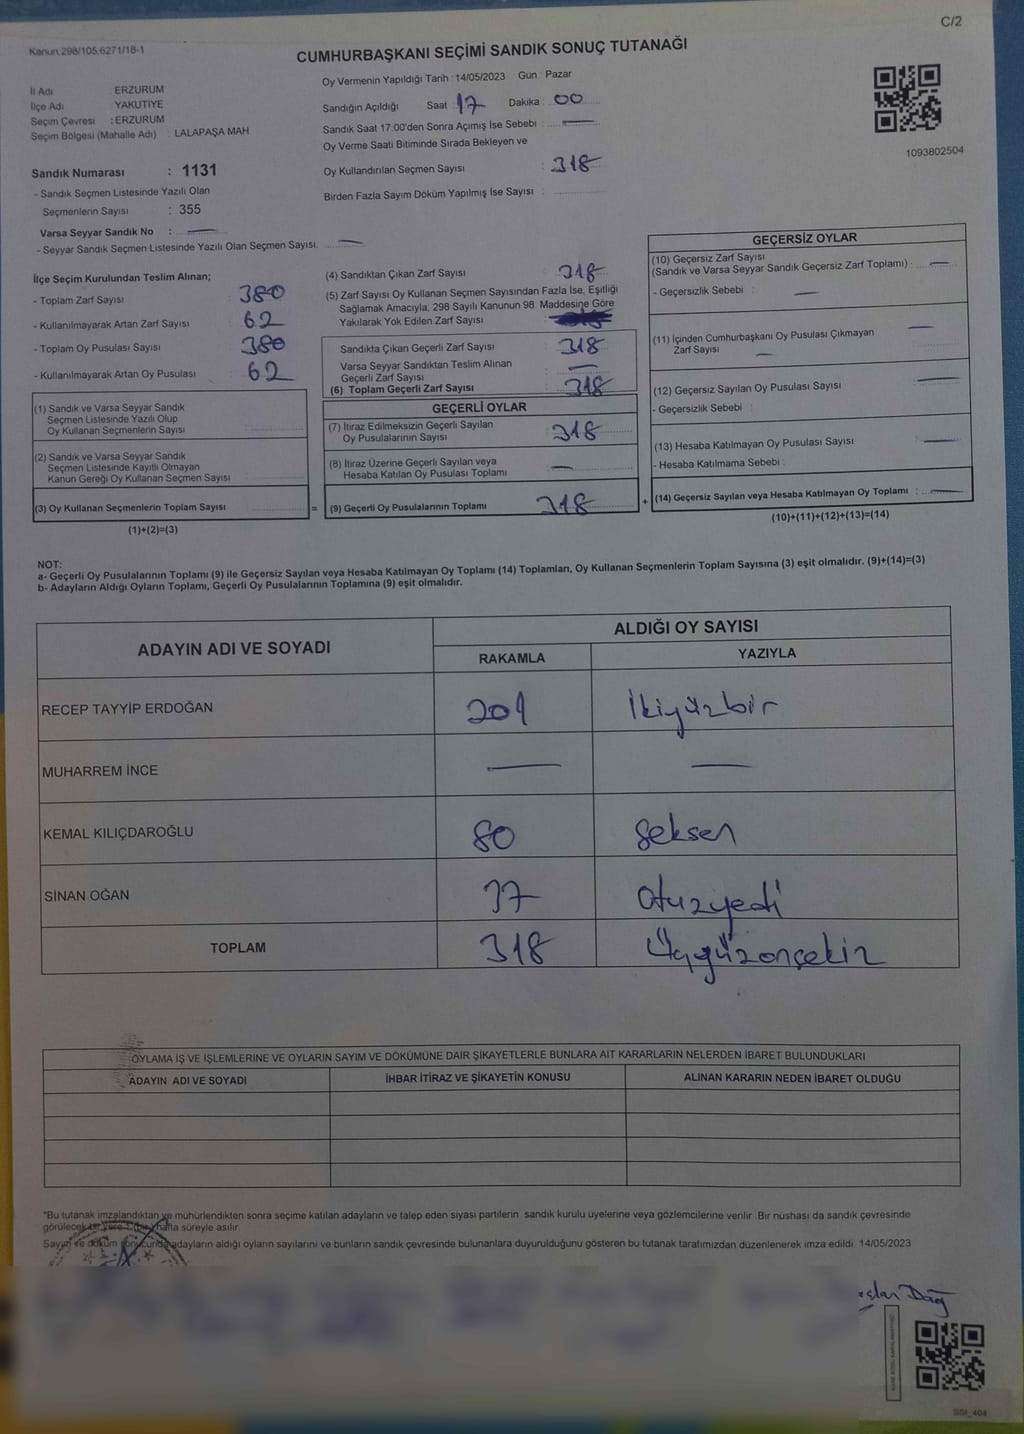 C/2
Kanun 298/105,6271/18-1
CUMHURBAŞKANI SEÇİMİ SANDIK SONUÇ TUTANAĞI
İl Adı ERZURUM
İlçe Adı YAKUTİYE
Seçim Çevresi : ERZURUM
Seçim Bölgesi (Mahalle Adı) : LALAPAŞA MAH
Oy Vermenin Yapıldığı Tarih : 14/05/2023 Gün : Pazar
Sandığın Açıldığı Saat 17 Dakika 00
Sandık Saat 17:00'den Sonra Açımış İse Sebebi :
Oy Verme Saati Bitiminde Sırada Bekleyen ve
Oy Kullandırılan Seçmen Sayısı : 318
Birden Fazla Sayım Döküm Yapılmış İse Sayısı :
1093802504
Sandık Numarası : 1131
- Sandık Seçmen Listesinde Yazılı Olan
Seçmenlerin Sayısı : 355
Varsa Seyyar Sandık No :
- Seyyar Sandık Seçmen Listesinde Yazılı Olan Seçmen Sayısı:
İlçe Seçim Kurulundan Teslim Alınan;
- Toplam Zarf Sayısı : 380
- Kullanılmayarak Artan Zarf Sayısı : 62
- Toplam Oy Pusulası Sayısı : 380
- Kullanılmayarak Artan Oy Pusulası : 62
(1) Sandık ve Varsa Seyyar Sandık
Seçmen Listesinde Yazılı Olup
Oy Kullanan Seçmenlerin Sayısı
(2) Sandık ve Varsa Seyyar Sandık
Seçmen Listesinde Kayıtlı Olmayan
Kanun Gereği Oy Kullanan Seçmen Sayısı :
(3) Oy Kullanan Seçmenlerin Toplam Sayısı
(1)+(2)=(3)
(4) Sandıktan Çıkan Zarf Sayısı : 318
(5) Zarf Sayısı Oy Kullanan Seçmen Sayısından Fazla İse, Eşitliği
Sağlamak Amacıyla; 298 Sayılı Kanunun 98. Maddesine Göre
Yakılarak Yok Edilen Zarf Sayısı
Sandıkta Çıkan Geçerli Zarf Sayısı : 318
Varsa Seyyar Sandıktan Teslim Alınan
Geçerli Zarf Sayısı :
(6) Toplam Geçerli Zarf Sayısı : 318
GEÇERLİ OYLAR
(7) İtiraz Edilmeksizin Geçerli Sayılan
Oy Pusulalarının Sayısı : 318
(8) İtiraz Üzerine Geçerli Sayılan veya
Hesaba Katılan Oy Pusulası Toplamı
= (9) Geçerli Oy Pusulalarının Toplamı 318
GEÇERSİZ OYLAR
(10) Geçersiz Zarf Sayısı
(Sandık ve Varsa Seyyar Sandık Geçersiz Zarf Toplamı) :
- Geçersizlik Sebebi :
(11) İçinden Cumhurbaşkanı Oy Pusulası Çıkmayan
Zarf Sayısı
(12) Geçersiz Sayılan Oy Pusulası Sayısı
- Geçersizlik Sebebi :
(13) Hesaba Katılmayan Oy Pusulası Sayısı
- Hesaba Katılmama Sebebi :
+ (14) Geçersiz Sayılan veya Hesaba Katılmayan Oy Toplamı :
(10)+(11)+(12)+(13)=(14)
NOT:
a- Geçerli Oy Pusulalarının Toplamı (9) ile Geçersiz Sayılan veya Hesaba Katılmayan Oy Toplamı (14) Toplamları, Oy Kullanan Seçmenlerin Toplam Sayısına (3) eşit olmalıdır. (9)+(14)=(3)
b- Adayların Aldığı Oyların Toplamı, Geçerli Oy Pusulalarının Toplamına (9) eşit olmalıdır.
ADAYIN ADI VE SOYADI ALDIĞI OY SAYISI
RAKAMLA YAZIYLA
RECEP TAYYİP ERDOĞAN 201 İkiyüzbir
MUHARREM İNCE
KEMAL KILIÇDAROĞLU 80 Seksen
SİNAN OĞAN 37 Otuzyedi
TOPLAM 318 Üçyüzonsekiz
OYLAMA İŞ VE İŞLEMLERİNE VE OYLARIN SAYIM VE DÖKÜMÜNE DAİR ŞİKAYETLERLE BUNLARA AİT KARARLARIN NELERDEN İBARET BULUNDUKLARI
ADAYIN ADI VE SOYADI İHBAR İTİRAZ VE ŞİKAYETİN KONUSU ALINAN KARARIN NEDEN İBARET OLDUĞU
*Bu tutanak imzalandıktan ve mühürlendikten sonra seçime katılan adayların ve talep eden siyasi partilerin sandık kurulu üyelerine veya gözlemcilerine verilir. Bir nüshası da sandık çevresinde
görülecek bir yere hafta süreyle asılır.
Sayım ve döküm sonucunda adayların aldığı oyların sayılarını ve bunların sandık çevresinde bulunanlara duyurulduğunu gösteren bu tutanak tarafımızdan düzenlenerek imza edildi. 14/05/2023
Dağ
SSI_404